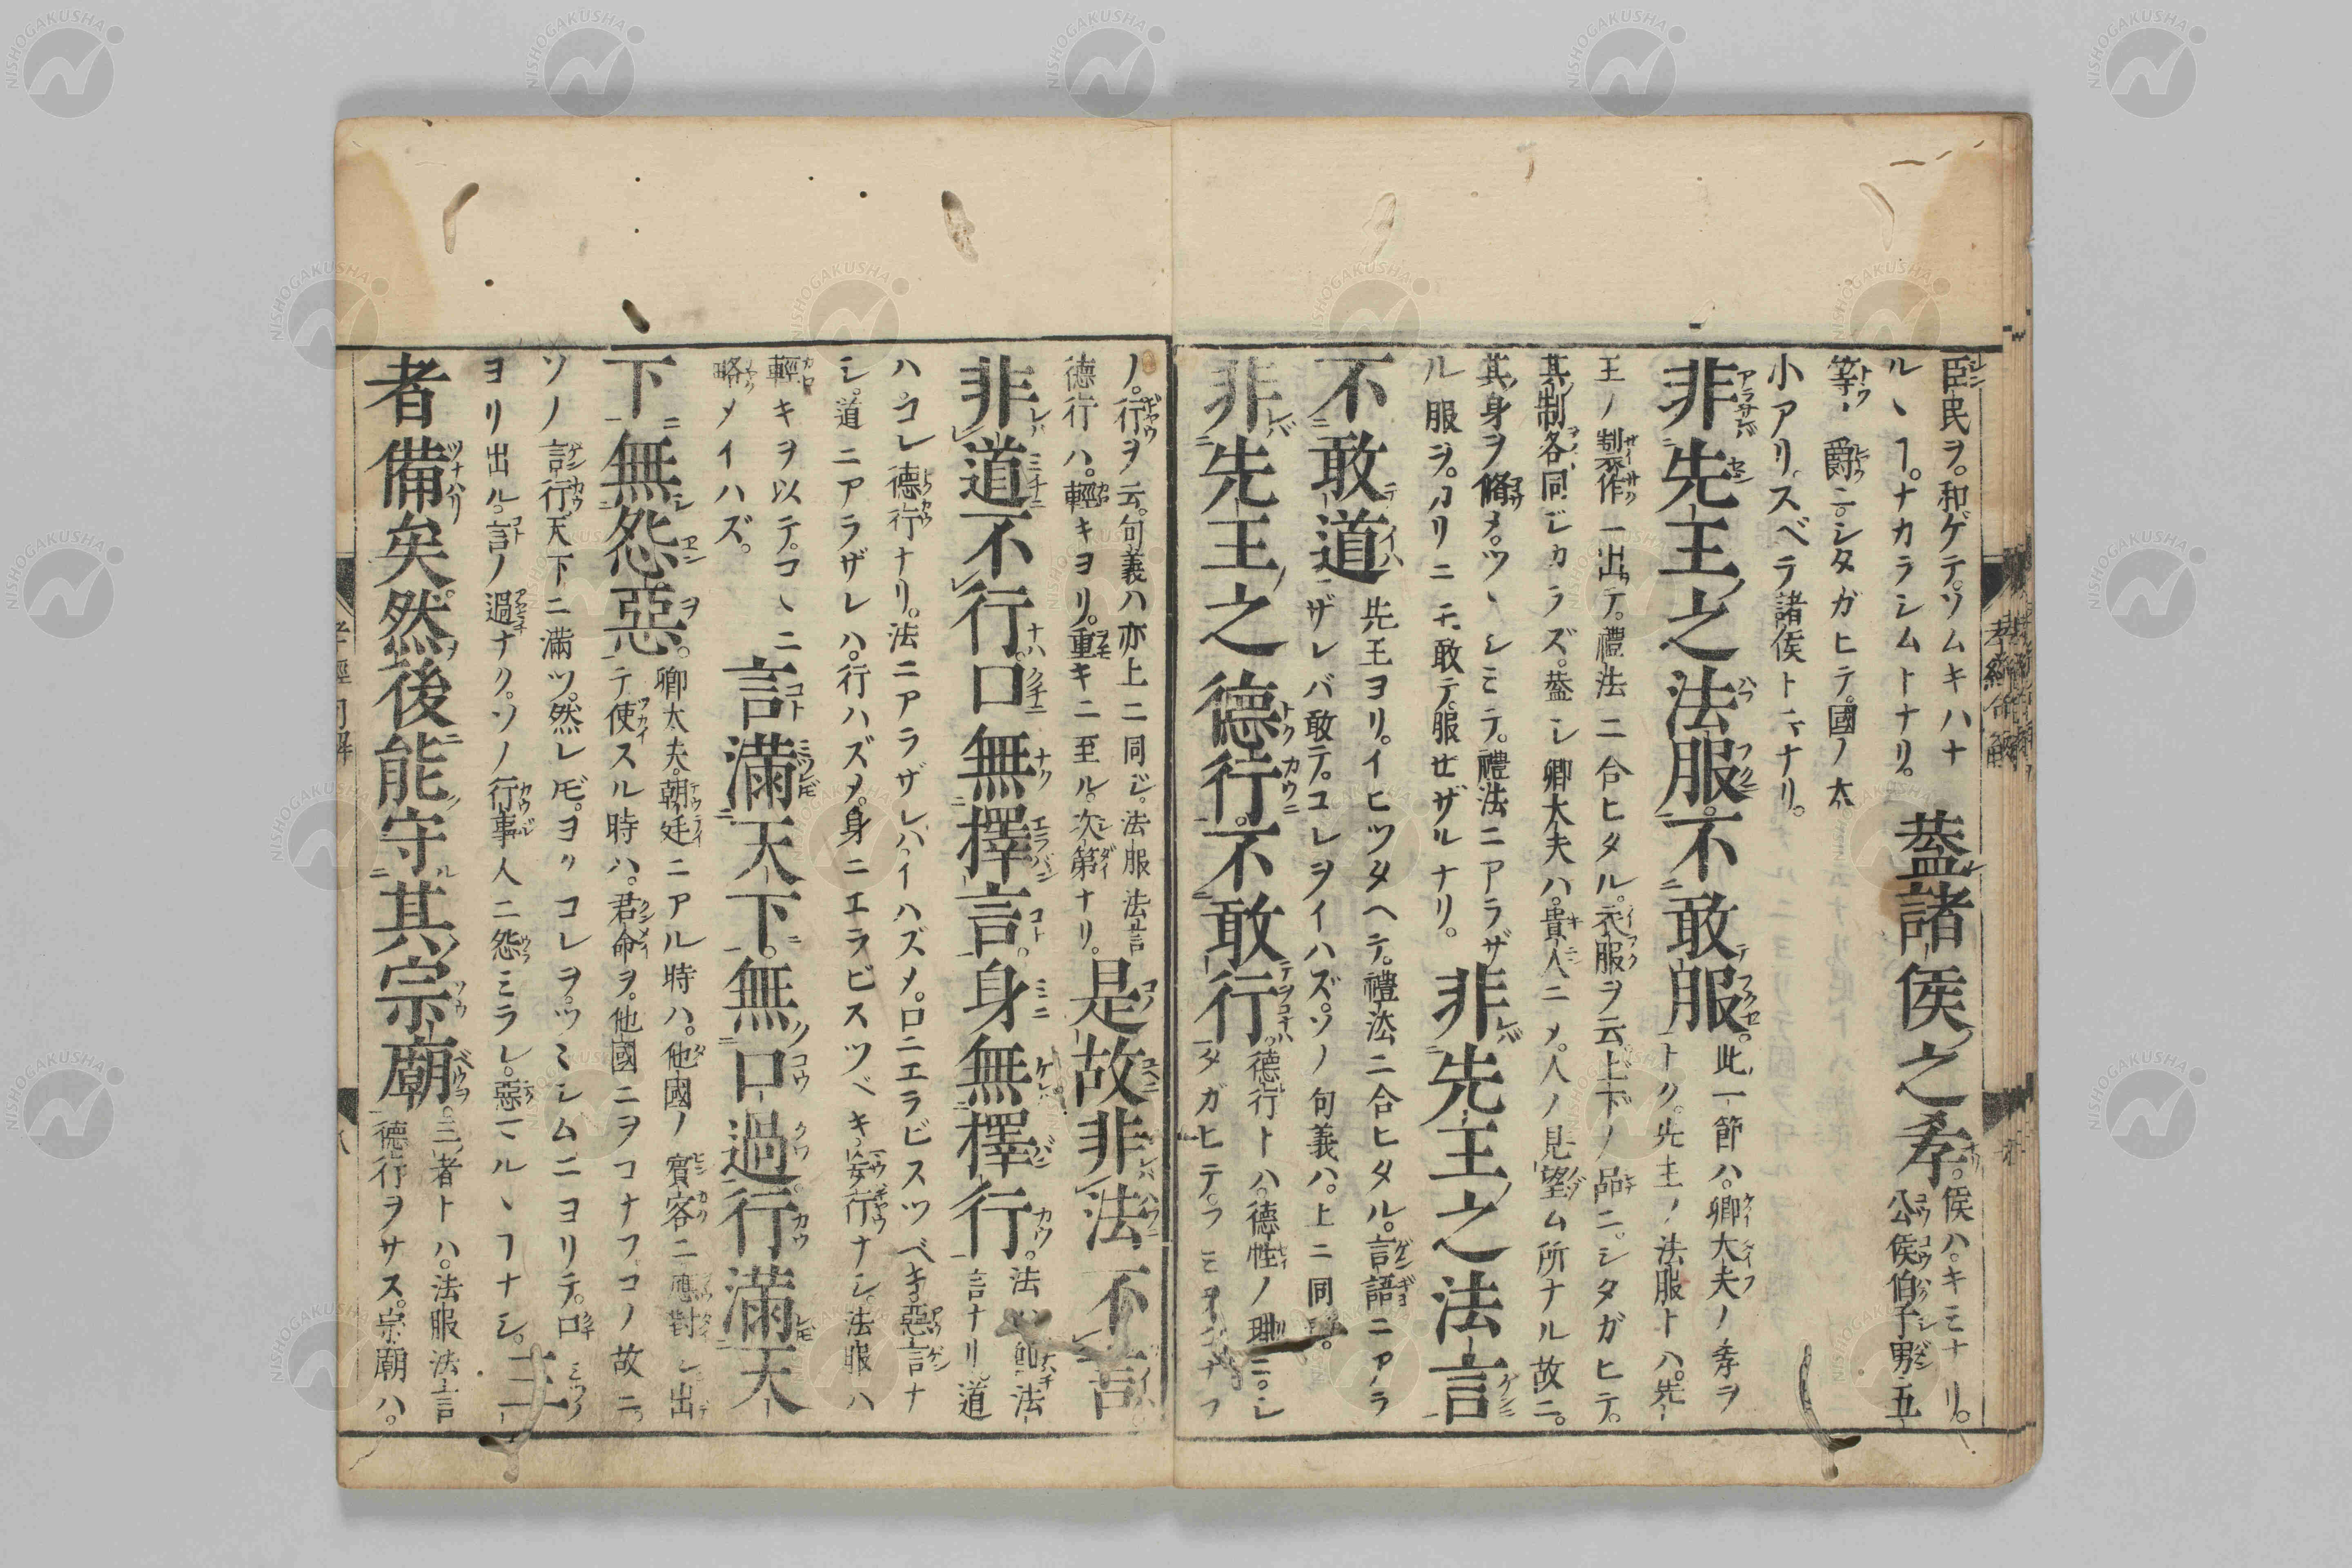 臣民ヲ。和ゲテ。ソムキハナ
ル丶ヿ。ナカラシムトナリ。
蓋諸侯之孝。
侯ハ。キミナリ。
公侯伯子男五
等ノ爵ニ。シタガヒテ。國ノ大
小アリ。スベテ諸侯ト云ナリ。
非先王之法服。不敢服。
此一節ハ。卿大夫ノ孝ヲ
トク。先王ノ法服トハ。先
王ノ制作一出テ。禮法ニ合ヒタル。衣服ヲ云。上下ノ品ニ。シタガヒテ。
其制各同ジカラズ。蓋シ卿大夫ハ。貴人ニ〆。人ノ見望ム所ナル故ニ。
其身ヲ脩メ。ツ丶シミテ。禮法ニアラザ
ル服ヲ。カリニモ敢テ。服セザルナリ。
非先王之法言
不敢道
先王ヨリ。イヒツタヘテ。禮法ニ合ヒタル。言語ニアラ
ザレバ敢テ。コレヲイハズ。ソノ句義ハ。上ニ同ジ。
非先王之德行。不敢行。
德行トハ。德性ノ理ニ。シ
タガヒテ。フミヲコナフ
ノ。行ヲ云。句義ハ亦上ニ同ジ。法服法言
德行ハ。輕キヨリ。重キニ至ル。次第ナリ。
是故非法不言。
非道不行。口無擇言。身無擇行。
法ハ
法
言ナリ道
ハ。コレ德行ナリ。法ニアラザレハ。イハズ〆。口ニエラビスツベキ。惡言ナ
シ。道ニアラザレハ。行ハズ〆。身ニエラビスツベキ。妄行ナシ。法服ハ
輕キヲ以テ。コ丶ニ
略メイハズ。
言滿天下。無口過。行滿天
下無怨惡。
卿大夫。朝廷ニアル時ハ。他國ノ賓客ニ應對シ。出
テ使スル時ハ。君命ヲ。他國ニヲコナフ。コノ故ニ。
ソノ言行。天下ニ滿ツ。然レ𪜈。ヨクコレヲ。ツ丶シムニヨリテ。口
ヨリ出ル。言ノ過ナク。ソノ行事人ニ怨ミラレ。惡マル丶ヿナシ。
三
者備矣。然後能守其宗廟。
三者トハ。法服法言
德行ヲサス。宗廟ハ。
孝經
八
NISHOGAKUSHA